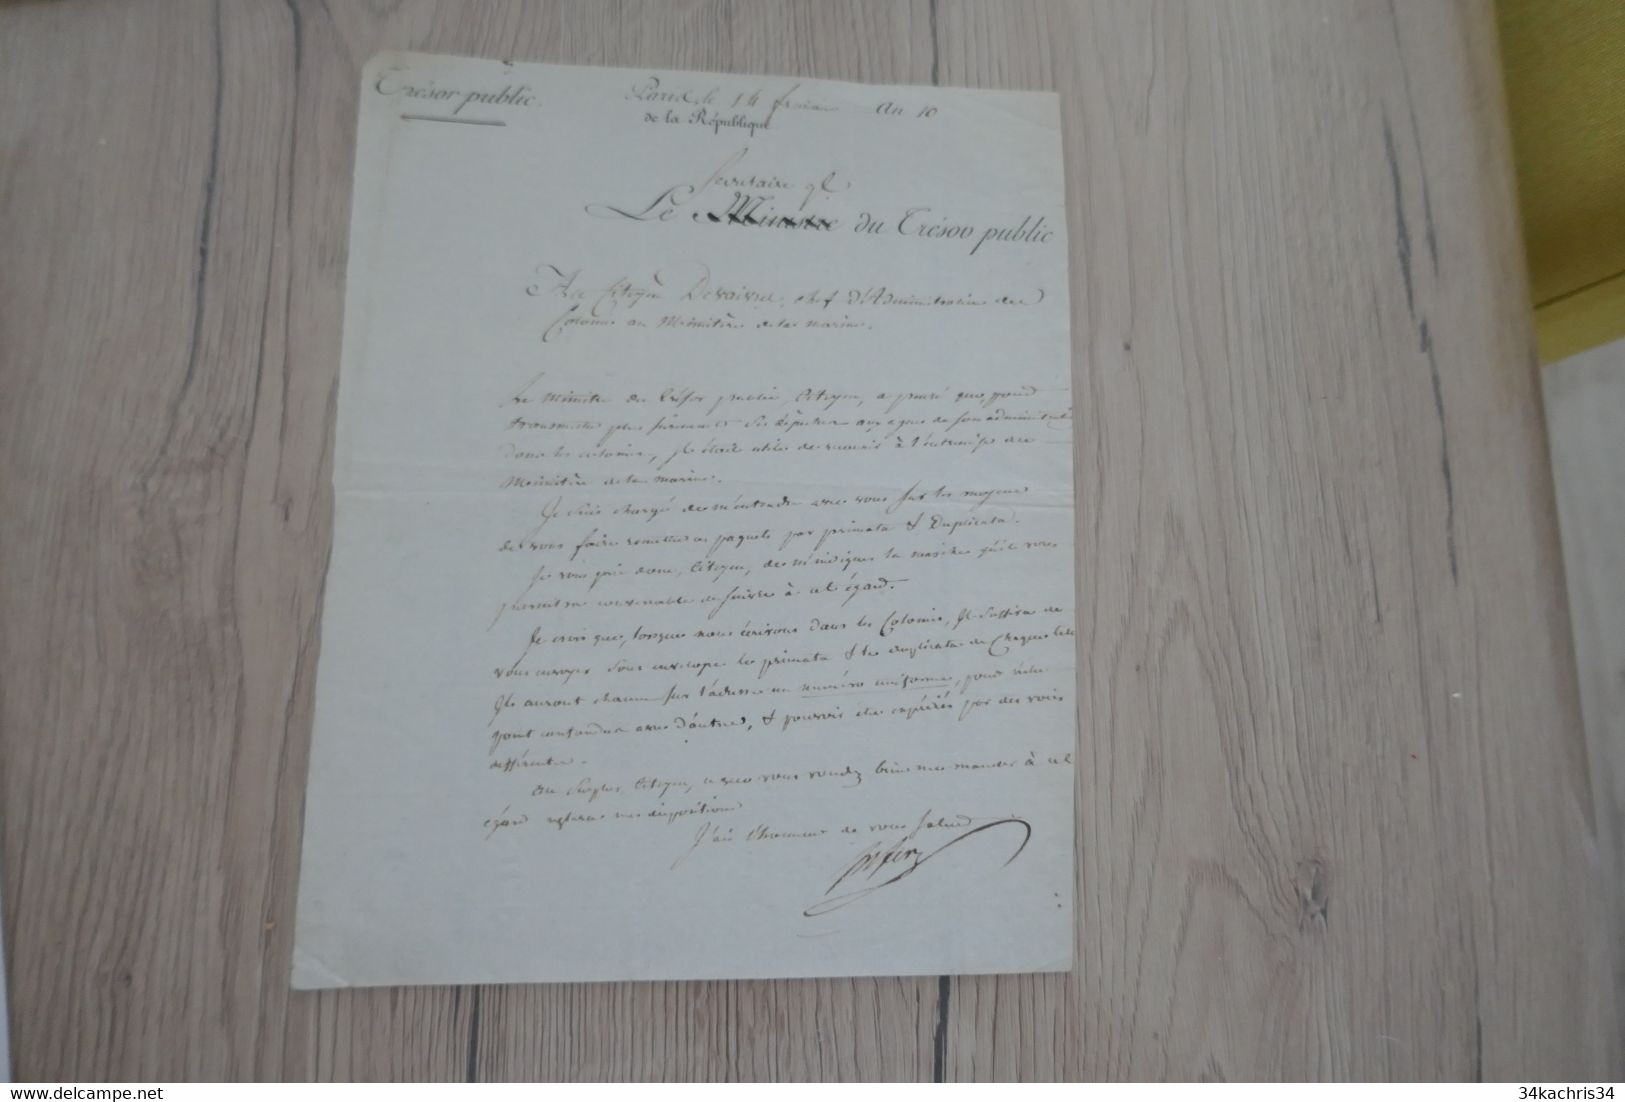 Trésor public.
Paris, le 14 frimaire An 10
de la République
Secrétaire gl
Le Ministre du Trésor public
Au Citoyen Devaivre, chef d'Administration des
Colonies au Ministère de la marine.
Le Ministre du Trésor public, Citoyen, a pensé que, pour
transmettre plus surement ses dépêches aux agens de son administration
dans les colonies, il était utile de recourir à l'entremise du
Ministère de la marine.
Je suis chargé de m'entendre avec vous sur les moyens
de vous faire remettre ces paquets par primata & Duplicata.
Je vous prie donc, Citoyen, de m'indiquer la marche qu'il vous
paraitra convenable de suivre à cet égard.
Je crois que, lorsque nous écrirons dans les Colonies, Il suffira de
vous envoyer sous enveloppe le primata & le duplicata de chaque lettre
Ils auront chacun sur l'adresse un numéro uniforme, pour n'être
point confondus avec d'autres, & pouvoir être expédiés par des voies
différentes.
Au surplus, Citoyen, ce que vous voudrez bien me mander à cet
égard réglera mes dispositions
J'ai l'honneur de vous saluer
34kachris34